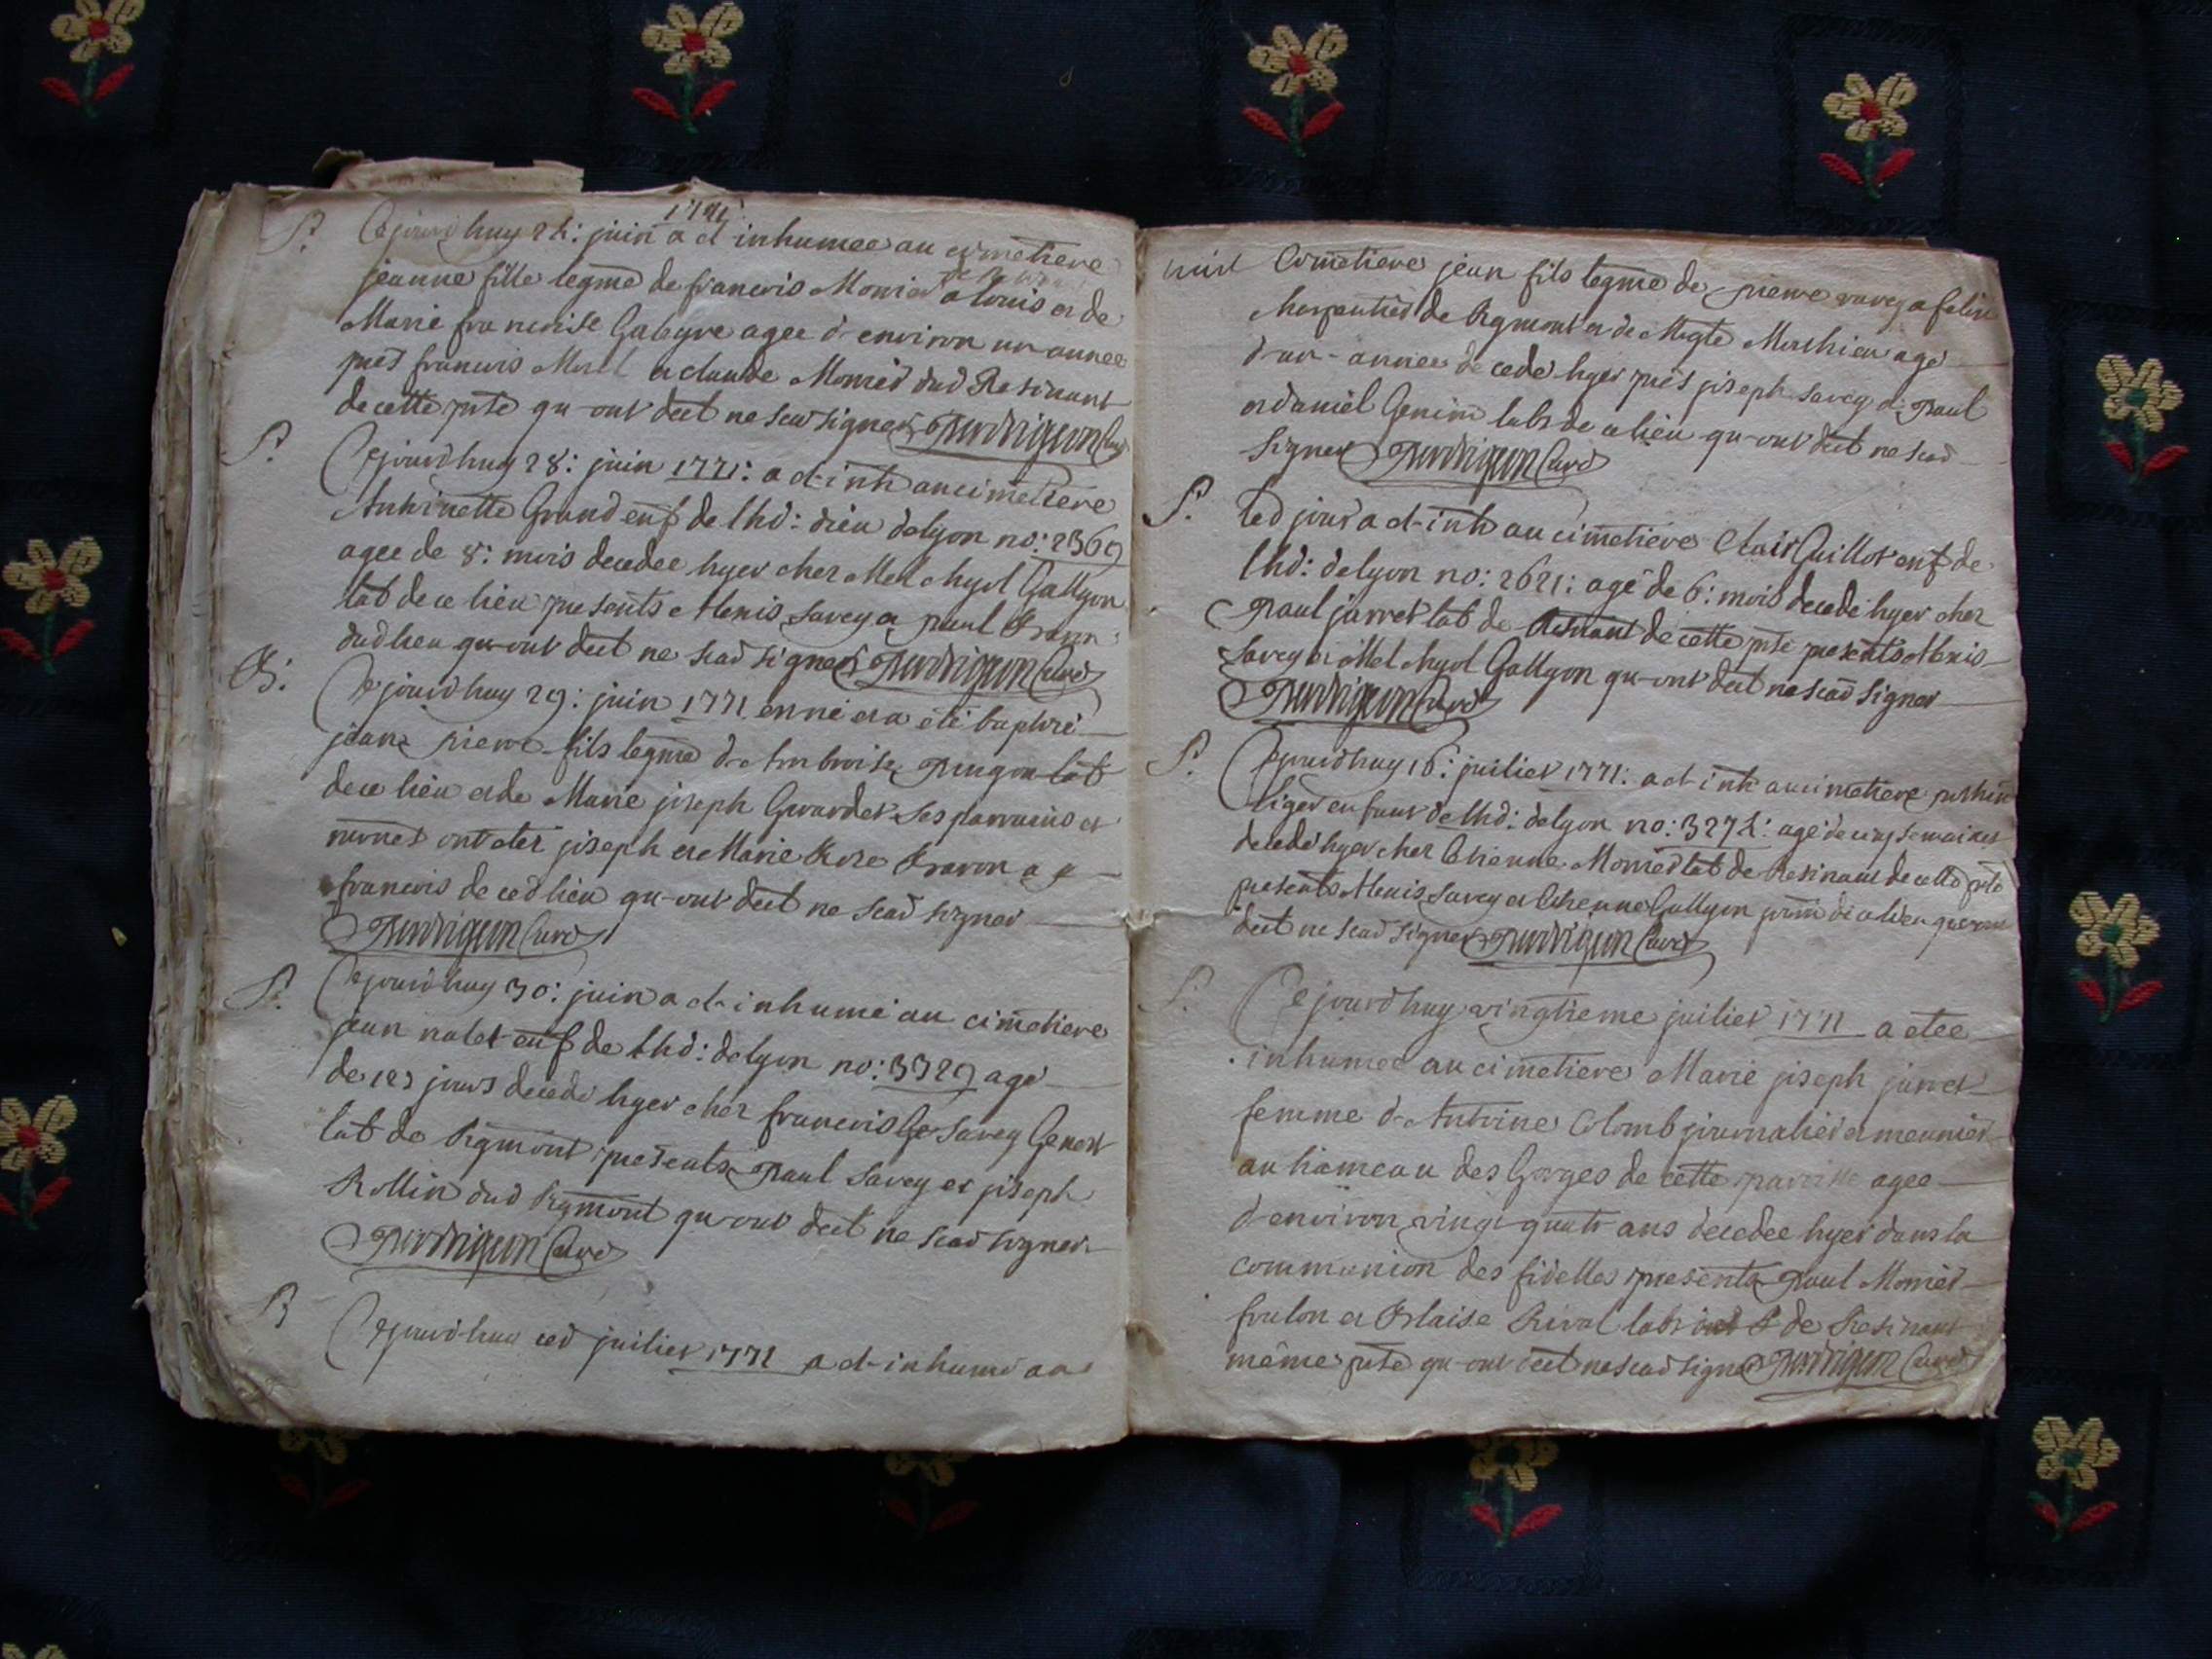 1771
S. Cejourdhuy 24: juin a et inhumee au cimetiere
jeanne fille legme de francois Monier et de
Marie francoise Galeyre agee d environ un annee
pnts francois Morel et claude Monier dud Resinant
de cette psse qu ont deet ne scav signer Perdrigeon Curé
S. Cejourdhuy 28: juin 1771: a et inh au cimetiere
Anthoinette Grand enf de lhd: dieu delyon no: 2369
agee de 8: mois decedee hyer chez Melchyol Gallyon
lab de ce lieu presents Alexis Savey et paul
dud lieu qu ont deet ne scav signer Perdrigeon Curé
B. Cejourdhuy 29: juin 1771 enné et a eté baptizé
jean pierre fils legme d Ambroise lab
de ce lieu et de Marie joseph Girardet Ses parrains et
ont eter joseph et Marie Roze
francois de ced lieu qu ont deet ne scav signer
Perdrigeon Curé
S. Cejourdhuy 30: juin a et inhumé au cimetiere
jean nalet enf de lhd: delyon no: 3329 agé
de jours decedé hyer chez francois Savey Genest
lab de Rigmont presents Paul Savey et joseph
Rollin dud Rigmont qu ont deet ne scav signer
Perdrigeon Curé
S Cejourdhuy juiliet 1771 a et inhumé au
Cimetiere jean fils legme de pierre
charpentier de Rigmont et de Magte Mathieu agé
d un annee decedé hyer pnts joseph Savey et Paul
et daniel Genin labs de ce lieu qu ont deet ne scav
signer Perdrigeon Curé
S. led jour a et inh au cimetiere Clair Guillot enf de
lhd: delyon no: 2621: agé de 6: mois decedé hyer chez
Paul jarret lab de Resinant de cette psse presents Alexis
Savey et Melchyol Gallyon qu ont deet ne scav signer
Perdrigeon Curé
S. Cejourdhuy 16: juiliet 1771: a et inh au cimetiere
liger enfant de lhd: delyon no: 3274: agé de cinq semaines
decedé hyer chez Etienne Monier lab de Resinant de cette psse
presents Alexis Savey et Etienne Gallyon de ce lieu qu ont
deet ne scav signer Perdrigeon Curé
S. Cejourdhuy vingtieme juiliet 1771 a etee
inhumee au cimetiere Marie joseph jarret
femme d Antoine Colomb journalier et meunier
au hameau des Gorges de cette paroisse agee
d environ vingt quatr ans decedee hyer dans la
communion des fidelles presents Paul Monier
foulon et Blaise Rival lab de Resinant
même psse qu ont deet ne scav signer Perdrigeon Curé